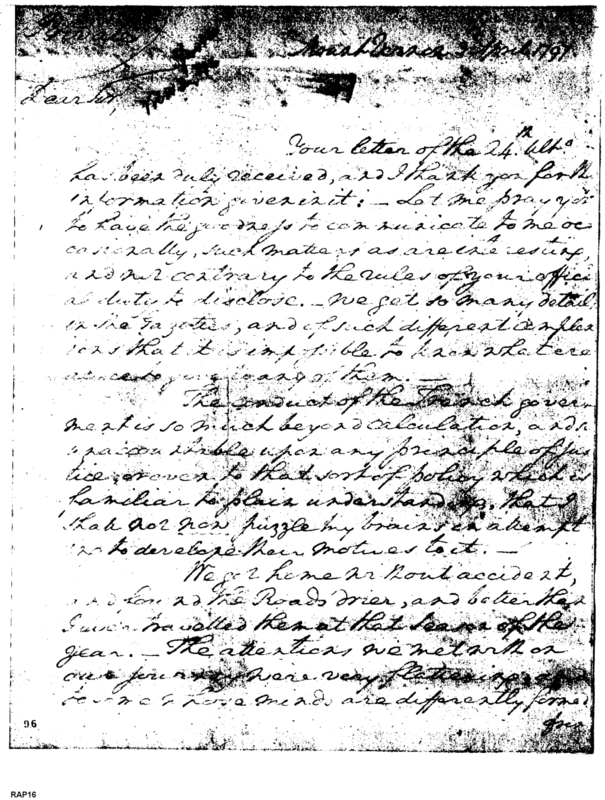 Private
Mount Vernon 3 April 1797
Dear Sir,
Your letter of the 24.th Ulto
has been duly received, and I thank you for the
information given in it: — Let me pray you
to have the goodness to communicate to me oc
casionally, such matters as are interesting,
and not contrary to the rules of your offici
al duty to disclose. — We get so many details
in the Gazettes, and of such different complex
ions that it is impossible to know what cre
dence to give to any of them. —
The conduct of the French govern
ment is so much beyond calculation, and so
unaccountable upon any principle of jus
tice or even to that sort of policy which is
familiar to plain understanding that I
shall not now puzzle my brains in attempt
ing to develope their motives to it. —
We got home without accident,
and found the Roads drier, and better than
I ever travelled them at that Season of the
year. — The attentions we met with on
our journey were very flattering, and
to some whose minds are differently formed
from
96
RAP16